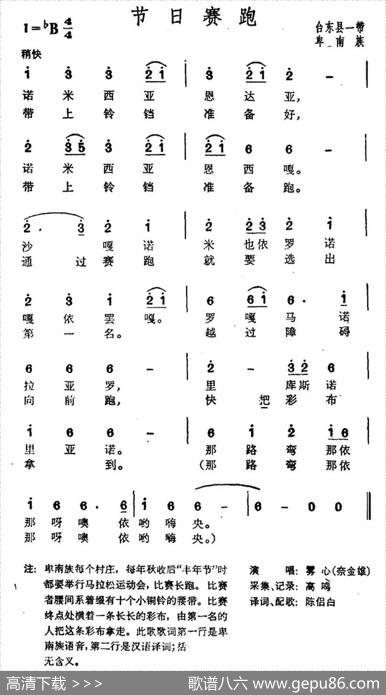 节日赛跑
1=♭B 4/4
台东县一带
卑南族
稍快
i 3 3 2i | 3 3 2i 2i |
诺米西亚 恩达亚,
带上铃铛 准备好,
2 35 3 2i | 2i 6 6 - |
诺米西亚 恩西嘎。
带上铃铛 准备跑。
2· 3 2 i | 2 23 2· i |
沙嘎诺 米也依罗诺
通过赛跑 就要选出
2 3 i 2i | 6 6i 6· i |
嘎依罢嘎。 罗嘎马诺
第一名。 越过障碍
6 6 6 - | 2 - 32 6 |
拉亚罗, 里库斯诺
向前跑, 快把彩布
i 6 6 - | 2 i 2 i6 |
里亚诺。 那路弯那依
拿到。 (那路弯那依
i 6 6· 6 | i 6 6 - | 6 - 0 0 ‖
那呀噢依哟嗨央。
那呀噢依哟嗨央。)
注: 卑南族每个村庄, 每年秋收后“丰年节”时
都要举行马拉松运动会, 比赛长跑。比赛
者腰间系着缀有十个小铜铃的腰带。比赛
终点处横着一条长长的彩布, 由第一名的
人把这条彩布拿走。此歌歌词第一行是卑
南族语音, 第二行是汉语译词; 括
无含义。
演 唱: 雾 心(奈金雄)
采集、记录: 高 鸣
译词、配歌: 陈侣白
高清下载 => 歌谱八六 www.gepu86.com